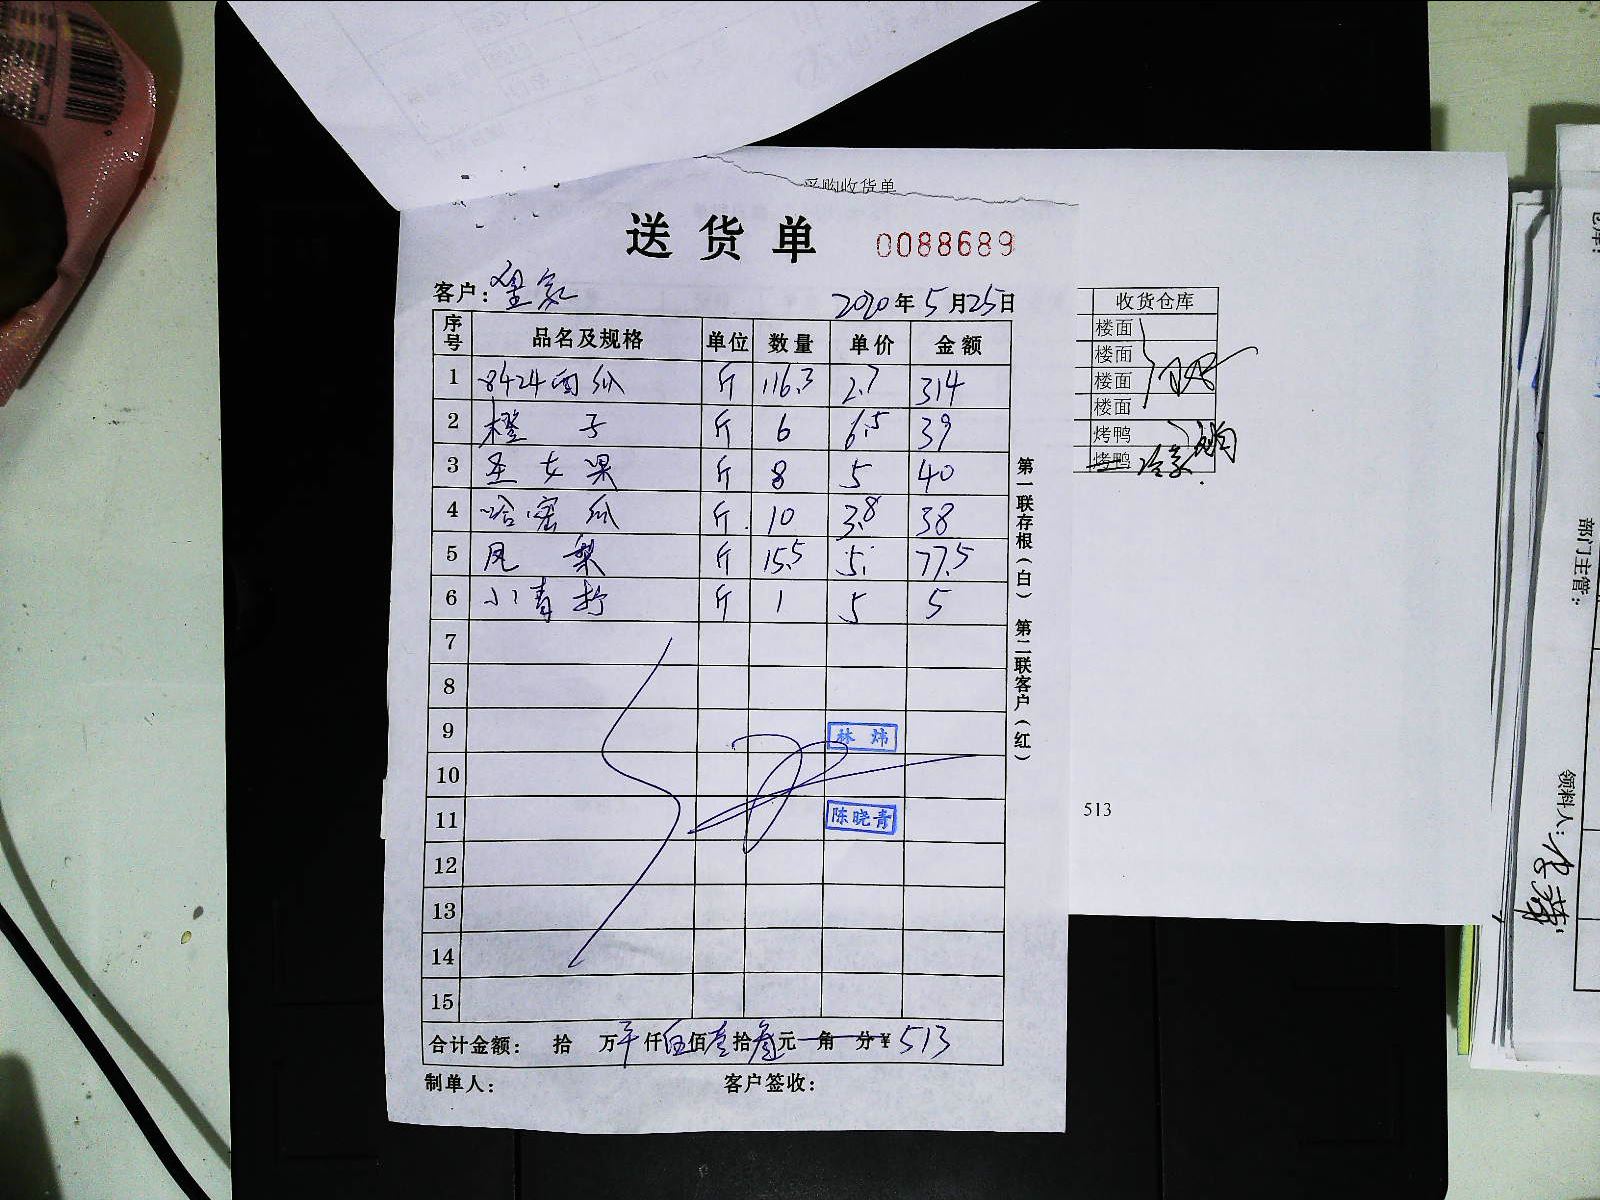 采购收货单
送货单 0088689
客户：皇家 2020年5月25日
序号 品名及规格 单位 数量 单价 金额
1 8424西瓜 斤 116.3 2.7 314
2 橙子 斤 6 6.5 39
3 圣女果 斤 8 5 40
4 哈密瓜 斤 10 3.8 38
5 凤梨 斤 15.5 5 77.5
6 小青柠 斤 1 5 5
7
8
9 林炜
10
11 陈晓青
12
13
14
15
合计金额： 拾 万 仟伍佰壹拾叁元 角 分￥513
制单人： 客户签收：
第一联存根（白） 第二联客户（红）
收货仓库
楼面
楼面
楼面
楼面
烤鸭
烤鸭
513
部门主管：
领料人：